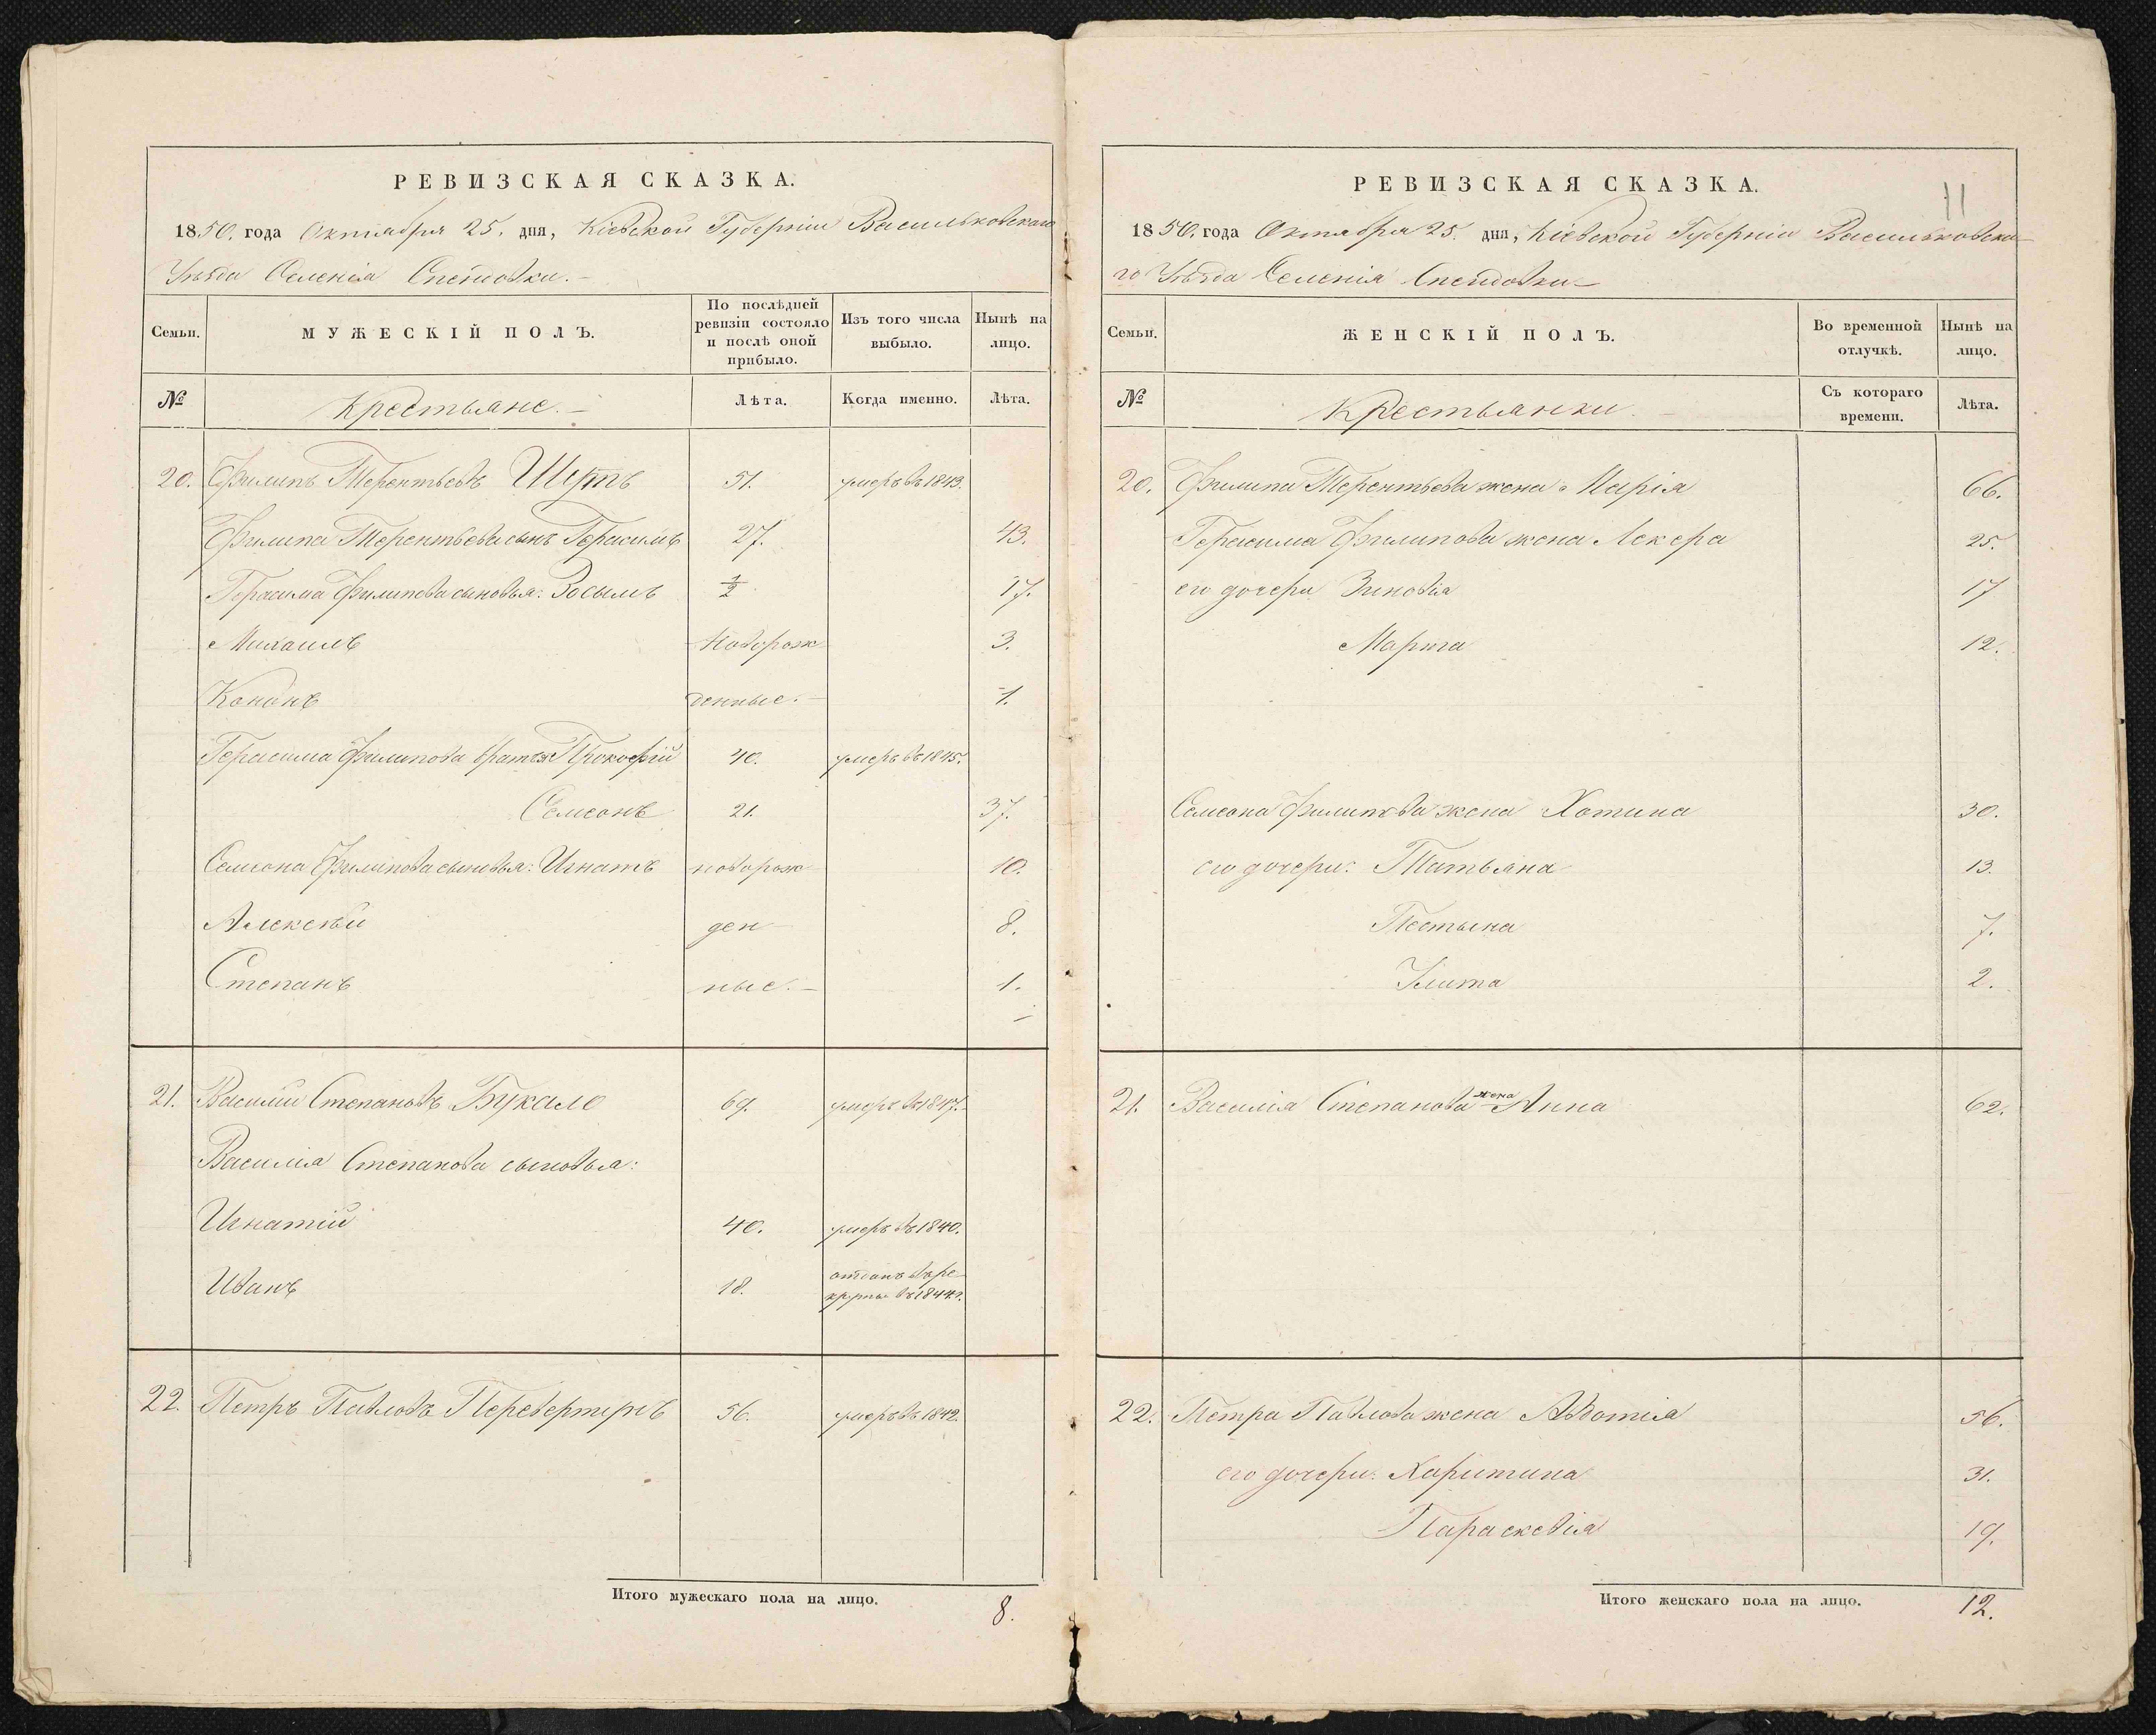 РЕВИЗСКАЯ СКАЗКА.
1850. года Октября 25. дня, Кіевской Губерніи Васильковскаго
Уѣзда Селенія
Семьи.
МУЖЕСКІЙ ПОЛЪ.
По послѣдней ревизіи состояло и послѣ оной прибыло.
Изъ того числа выбыло.
Нынѣ на лицо.
№
Крестьяне.
Лѣта.
Когда именно.
Лѣта.
20. Филипъ Терентьевъ 51. умеръ въ 1843.
Филипа Терентьева сынъ Герасимъ 27. 43.
Герасима Филипова сыновья: Зосымъ ½ 17.
Михаилъ Новорож 3.
Кононъ денные. 1.
Герасима Филипова братья Прокофій 40. умеръ въ 1845.
Семсонъ 21. 37.
Семсона Филипова сыновья: Игнатъ новорож 10.
Алексѣй ден 8.
Степанъ ные. 1.
21. Василій Степановъ Букало 69. умеръ въ 1847.
Василія Степанова сыновья:
Игнатій 40. умеръ въ 1840.
Иванъ 18. отданъ въ ре-
круты въ 1844 г.
22. Петръ Павловъ Перевертиръ 56. умеръ въ 1842.
Итого мужескаго пола на лицо. 8.
11
РЕВИЗСКАЯ СКАЗКА.
1850. года Октября 25. дня, Кіевской Губерніи Васильковска
го Уѣзда Селенія
Семьи.
ЖЕНСКІЙ ПОЛЪ.
Во временной отлучкѣ.
Нынѣ на лицо.
№
Крестьянки.
Съ котораго времени.
Лѣта.
20. Филипа Терентьева жена Марія 66.
Герасима Филипова жена Лекера 25.
его дочери Зиновія 17
Марфа 12.
Семсона Филипова жена Хотина 30.
его дочери: Татьяна 13.
Пестына 7.
Улита 2.
21. Василія Степанова жена Анна 62.
22. Петра Павлова жена Авдотія 56.
его дочери: Харитина 31.
Параскевія 19.
Итого женскаго пола на лицо. 12.